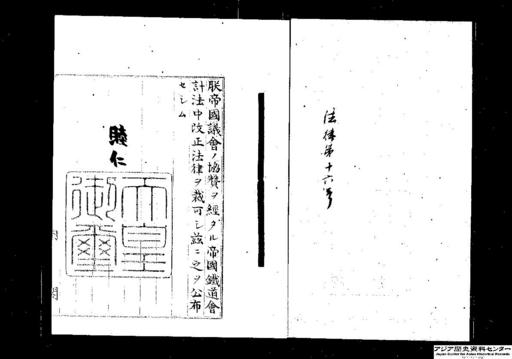 法律第十六号
朕帝國議會ノ協贊ヲ經タル帝國鐵道會
計法中改正法律ヲ裁可シ茲ニ之ヲ公布
セシム
睦仁
天皇
御璽
アジア歴史資料センター
Japan Center for Asian Historical Records